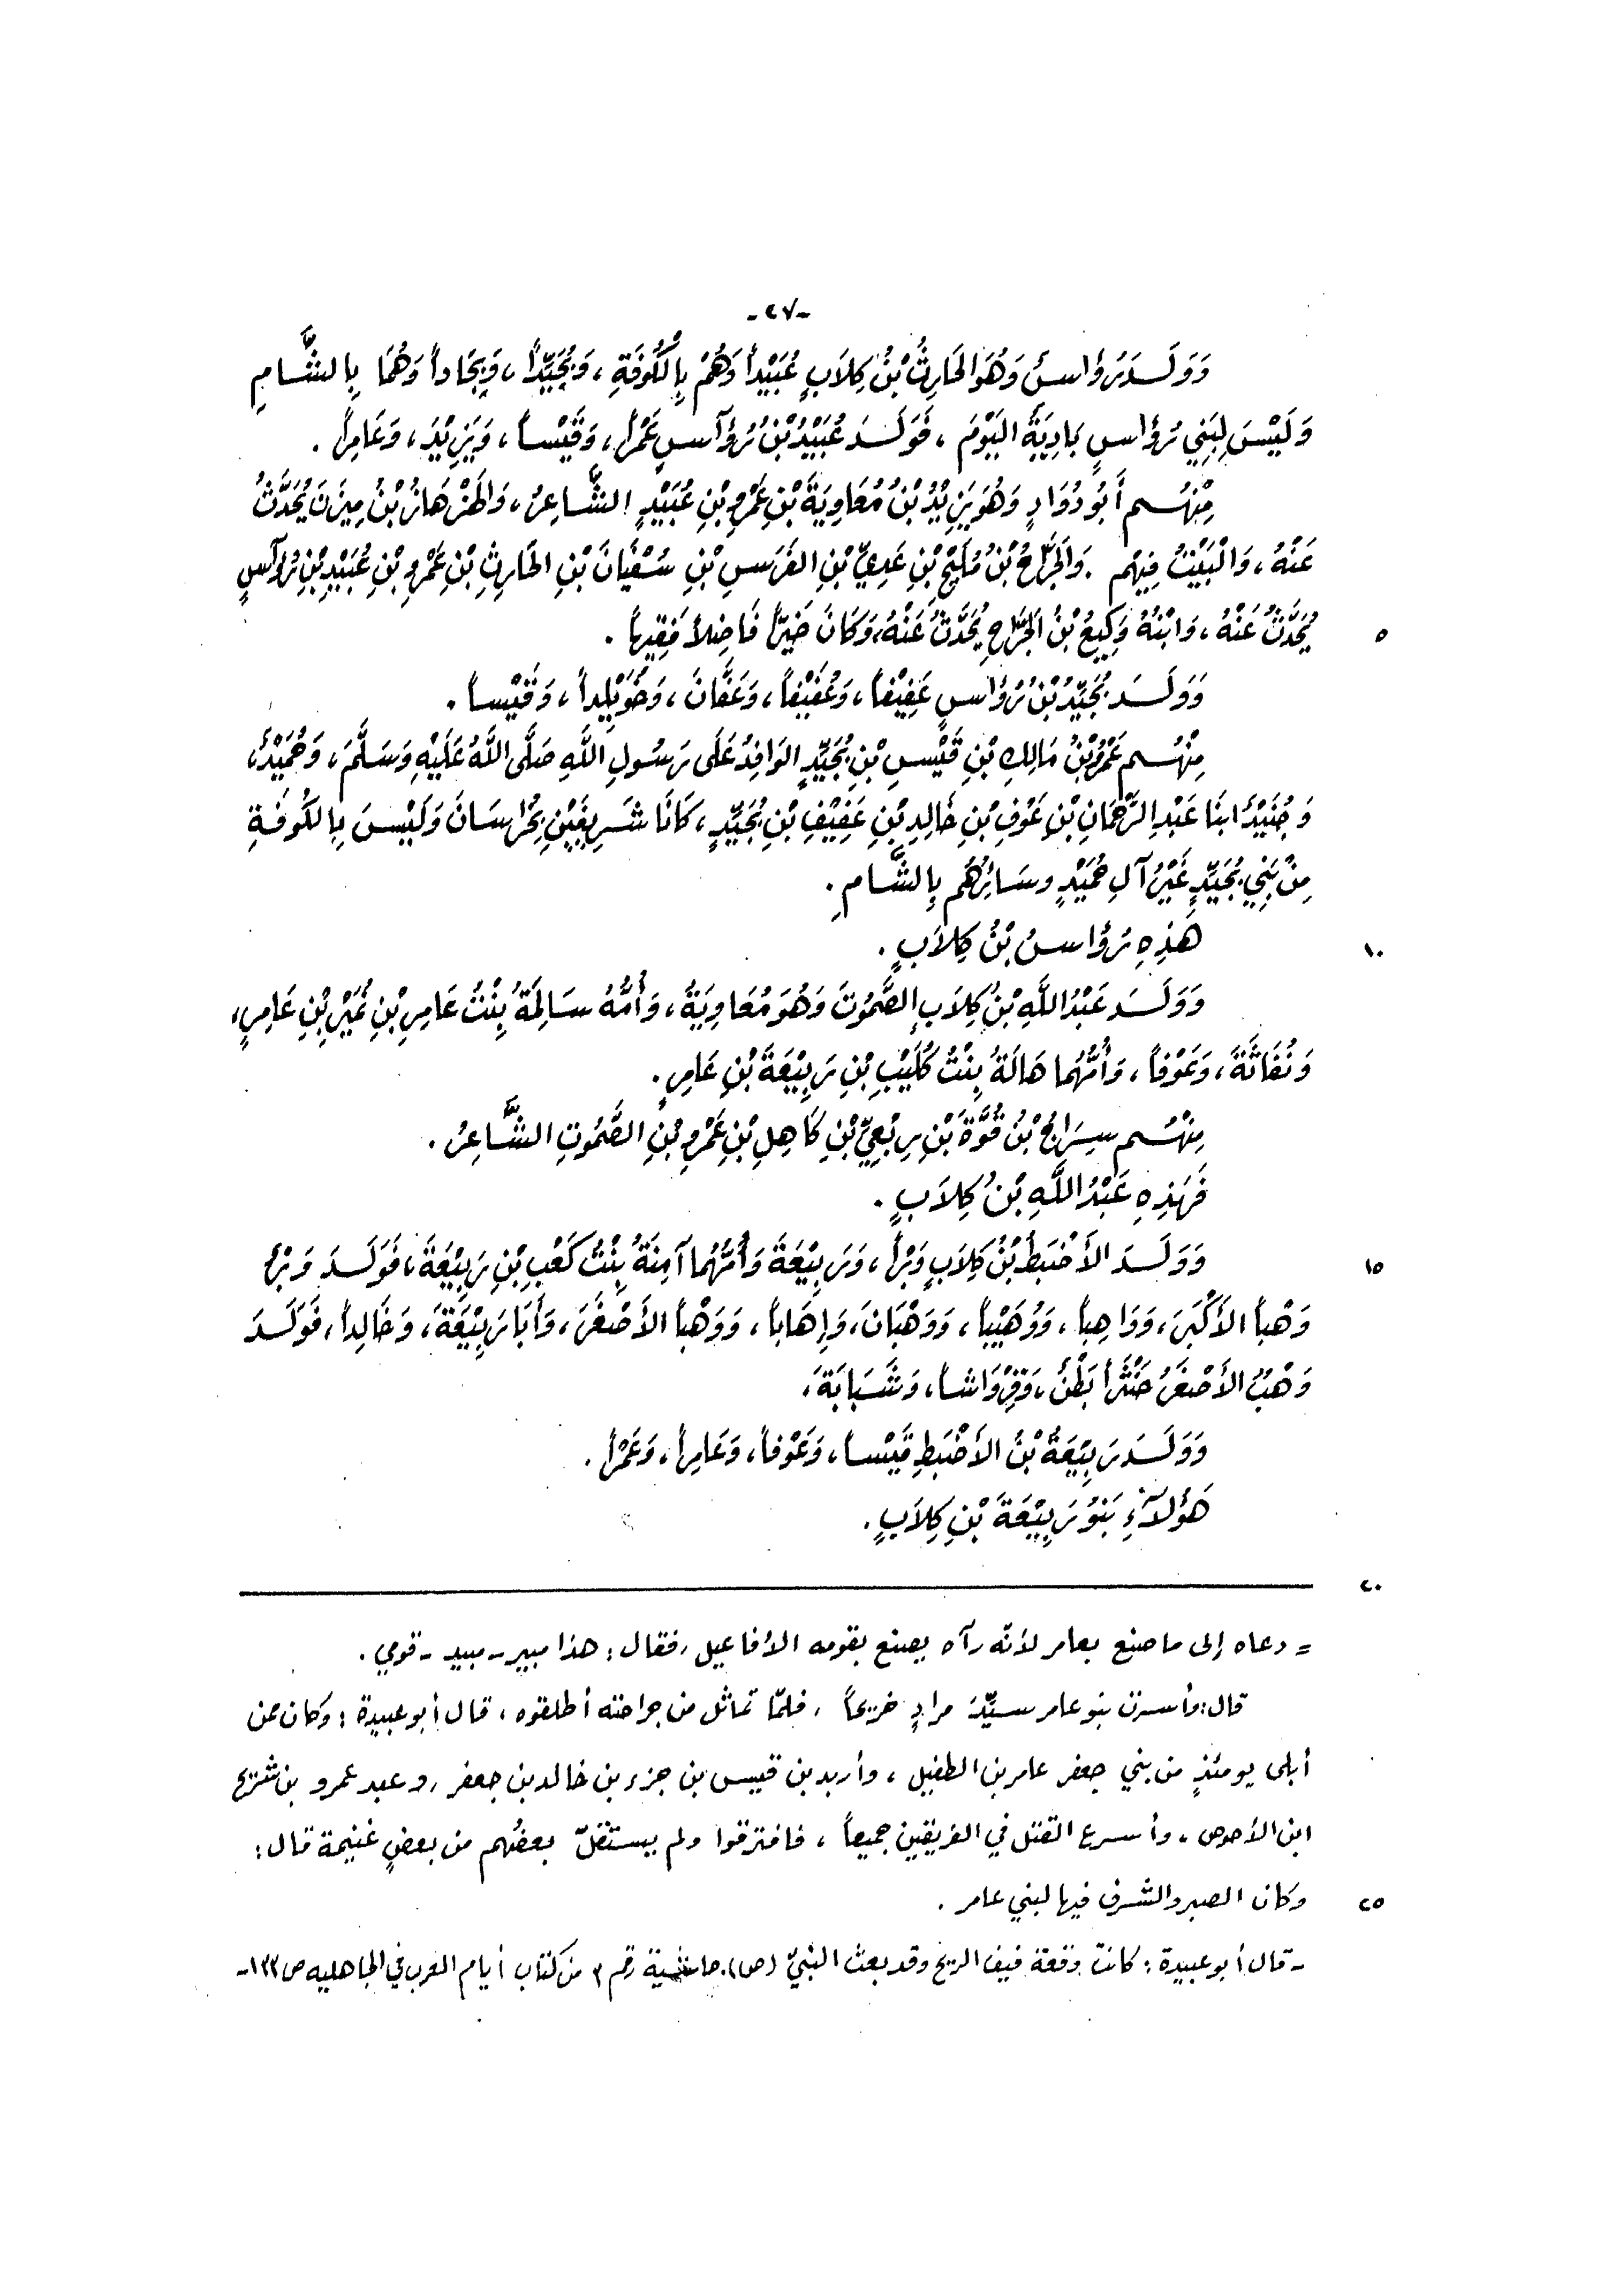 -٢٧-
وَوَلَدَ رُؤَاسُ وَهُوَ الحَارِثُ بْنُ كِلاَبٍ عُبَيْداً وَهُمْ بِالْكُوفَةِ ، وَبُجَيِّداً ، وَبِجَاداً وَهُمَا بِالشَّامِ
وَلَيْسَ لِبَنِي رُؤَاسٍ بَادِيَةُ اليَوْمَ ، فَوَلَدَ عُبَيْدُ بْنُ رُؤَآسٍ عَمْراً ، وَقَيْساً ، وَيَزِيْدَ ، وَعَامِراً .
مِنْهُم أَبُو دُوَادٍ وَهُوَ يَزِيْدُ بْنُ مُعَاوِيَةَ بْنِ عَمْرِو بْنِ عُبَيْدٍ الشَّاعِرُ ، وَالهَزْهَازُ بْنُ مِيزَنَ يُحَدَّثُ
عَنْهُ ، وَالْبَيْتُ فِيْهِم . وَالجَرَّاحُ بْنُ مُلَيْحِ بْنِ عَدِيِّ بْنِ الفَرَسِ بْنِ سُفْيَانَ بْنِ الحَارِثِ بْنِ عَمْرِو بْنِ عُبَيْدِ بْنِ رُؤَآسٍ
٥ يُحَدَّثُ عَنْهُ ، وَابْنُهُ وَكِيعُ بْنُ الجَرَّاحِ يُحَدَّثُ عَنْهُ، وَكَانَ خَيِّراً فَاضِلاً فَقِيهاً .
وَوَلَدَ بُجَيِّدُ بْنُ رُؤَاسٍ عَفِيْفاً ، وَعُفَيْفاً ، وَعَفَّانَ ، وَخُوَيْلِداً ، وَقَيْساً .
مِنْهُم عَمْرُو بْنُ مَالِكِ بْنِ قَيْسِ بْنِ بُجَيِّدٍ الوَافِدُ عَلَى رَسُولِ اللَّهِ صَلَّى اللَّهُ عَلَيْهِ وَسَلَّمَ ، وَحُمَيْدٌ،
وَجُنَيْدٌ ابنَا عَبْدِ الرَّحْمَانِ بْنِ عَوْفِ بْنِ خَالِدِ بْنِ عَفِيْفِ بْنِ بُجَيِّدٍ ، كَانَا شَرِيفَيْنِ بِخُرَاسَانَ وَلَيْسَ بِالكُوفَةِ
مِنْ بَنِي بُجَيِّدٍ غَيْرُ آلِ حُمَيْدٍ وسَائِرُهُم بِالشَّامِ .
١٠ هَذِهِ رُؤَاسُ بْنُ كِلاَبٍ .
وَوَلَدَ عَبْدُ اللَّهِ بْنُ كِلاَبٍ الصَّمُوتَ وَهُوَ مُعَاوِيَةُ ، وَأُمُّهُ سَالِمَةُ بِنْتُ عَامِرِ بْنِ نُمَيْرِ بْنِ عَامِرٍ،
وَنُفَاثَةَ ، وَعَوْفاً ، وَأُمُّهُما هَالَةُ بِنْتُ كُلَيْبِ بْنِ رَبِيْعَةَ بْنِ عَامِرٍ .
مِنْهُم سِرَاجُ بْنُ قُوَّةَ بْنِ رِبْعِيِّ بْنِ كَاهِلِ بْنِ عَمْرِو بْنِ الصَّمُوتِ الشَّاعِرُ .
فَهَذِهِ عَبْدُ اللَّهِ بْنُ كِلاَبٍ .
١٥ وَوَلَدَ الأَضْبَطُ بْنُ كِلاَبٍ وَبْراً ، وَرَبِيْعَةَ وَأُمُّهُما آمِنَةُ بِنْتُ كَعْبِ بْنِ رَبِيْعَةَ ، فَوَلَدَ وَبْرٌ
وَهْباً الأَكْبَرَ ، وَوَاهِباً ، وَوُهَيْباً ، وَوَهْبَانَ ، وَإِهَاباً ، وَوَهْباً الأَصْغَرَ ، وَأَبَا رَبِيْعَةَ ، وَخَالِداً ، فَوَلَدَ
وَهْبٌ الأَصْغَرُ حَنْثَراً بَطْنٌ ، وَقِرْوَاشاً ، وَشَبَابَةَ ،
وَوَلَدَ رَبِيْعَةُ بْنُ الأَضْبَطِ قَيْساً ، وَعَوْفاً ، وَعَامِراً ، وَعَمْراً .
هَؤُلآءِ بَنُو رَبِيْعَةَ بْنِ كِلاَبٍ .
٢٠
= دعاه إلى ما صنع بعامر لأنّه رآه يصنع بقومه الأفاعيل ، فقال : هذا مبير - مبيد - قومي .
قال : وأسرت بنو عامر سيِّدَ مرادٍ جريحاً ، فلمّا تماثل من جراحته أطلقوه ، قال أبو عبيدة : وكان ممن
أبلى يومئذٍ من بني جعفر عامر بن الطفيل ، وأربد بن قيس بن جزء بن خالد بن جعفر ، وعبد عمرو بن شريح
ابن الأحوص ، وأسرع القتل في الفريقين جميعاً ، فافترقوا ولم يستقلّ بعضُهم من بعضٍ غنيمة قال :
٢٥ وكان الصبر والشرف فيها لبني عامر .
- قال أبو عبيدة : كانت وقعة فيف الريح وقد بعث النبيّ (ص). حاشية رقم ٣ من كتاب أيام العرب في الجاهليه ص ١٣٢-